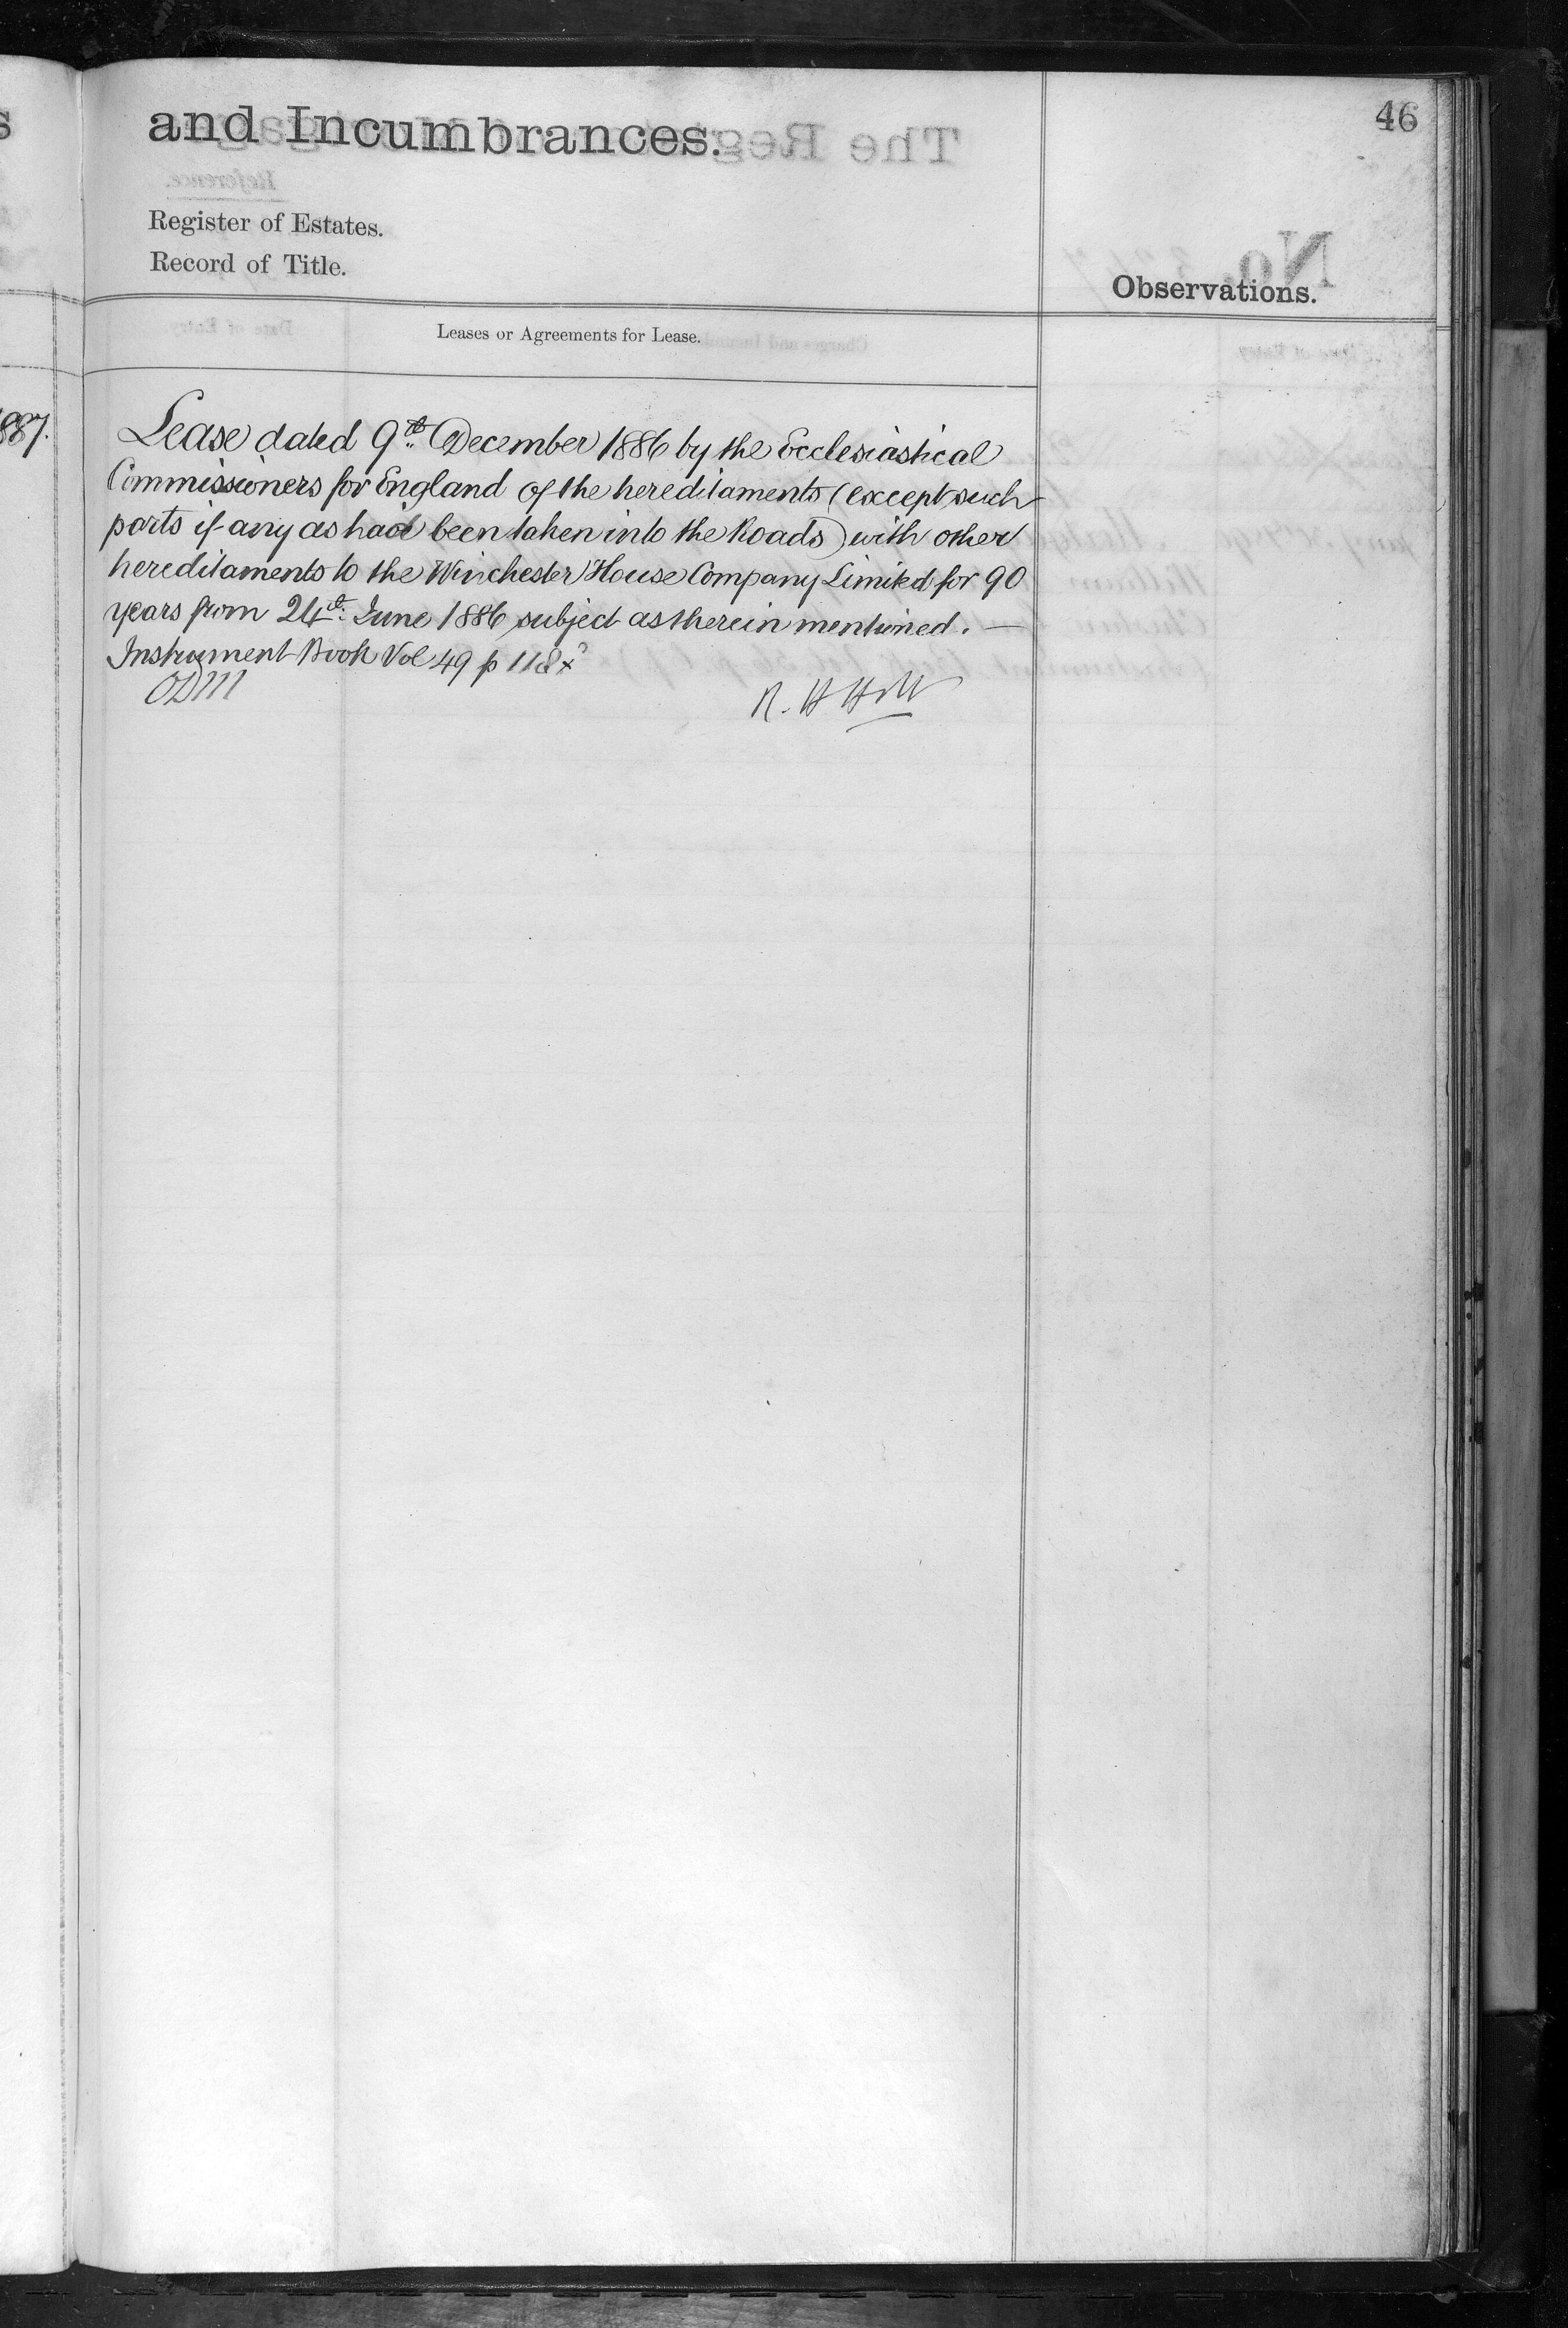 46
and Incumbrances.
Register of Estates.
Record of Title.
Observations.
Leases or Agreements for Lease.
887.
Lease dated 9th December 1886 by the Ecclesiastical
Commissioners for England of the hereditaments (except such
parts if any as had been taken into the Roads) with other
hereditaments to the Winchester House Company Limited for 90
years from 24th June 1886 subject as therein mentioned. —
Instrument Book Vol 49 p 118
ODM
R. H Holt